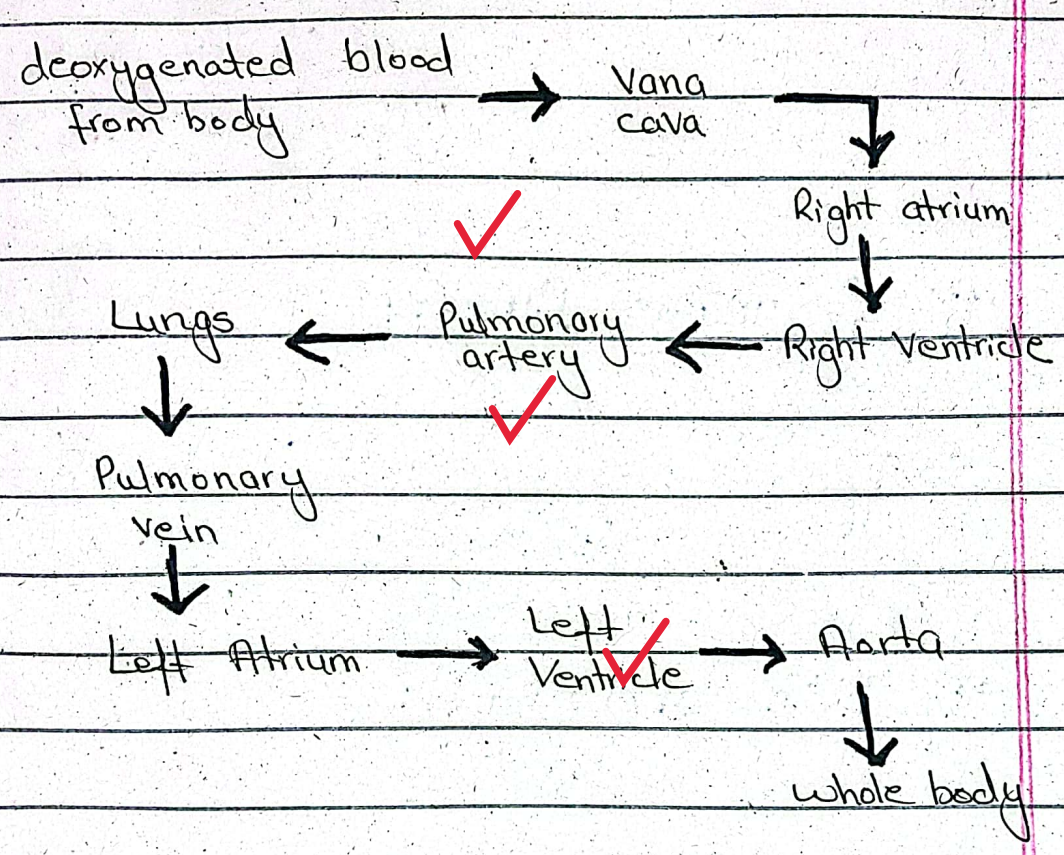 deoxygenated blood
from body
Vana
cava
Right atrium
Lungs
Pulmonary
artery
Right Ventricle
Pulmonary
vein
Left Atrium
Left
Ventricle
Aorta
whole body